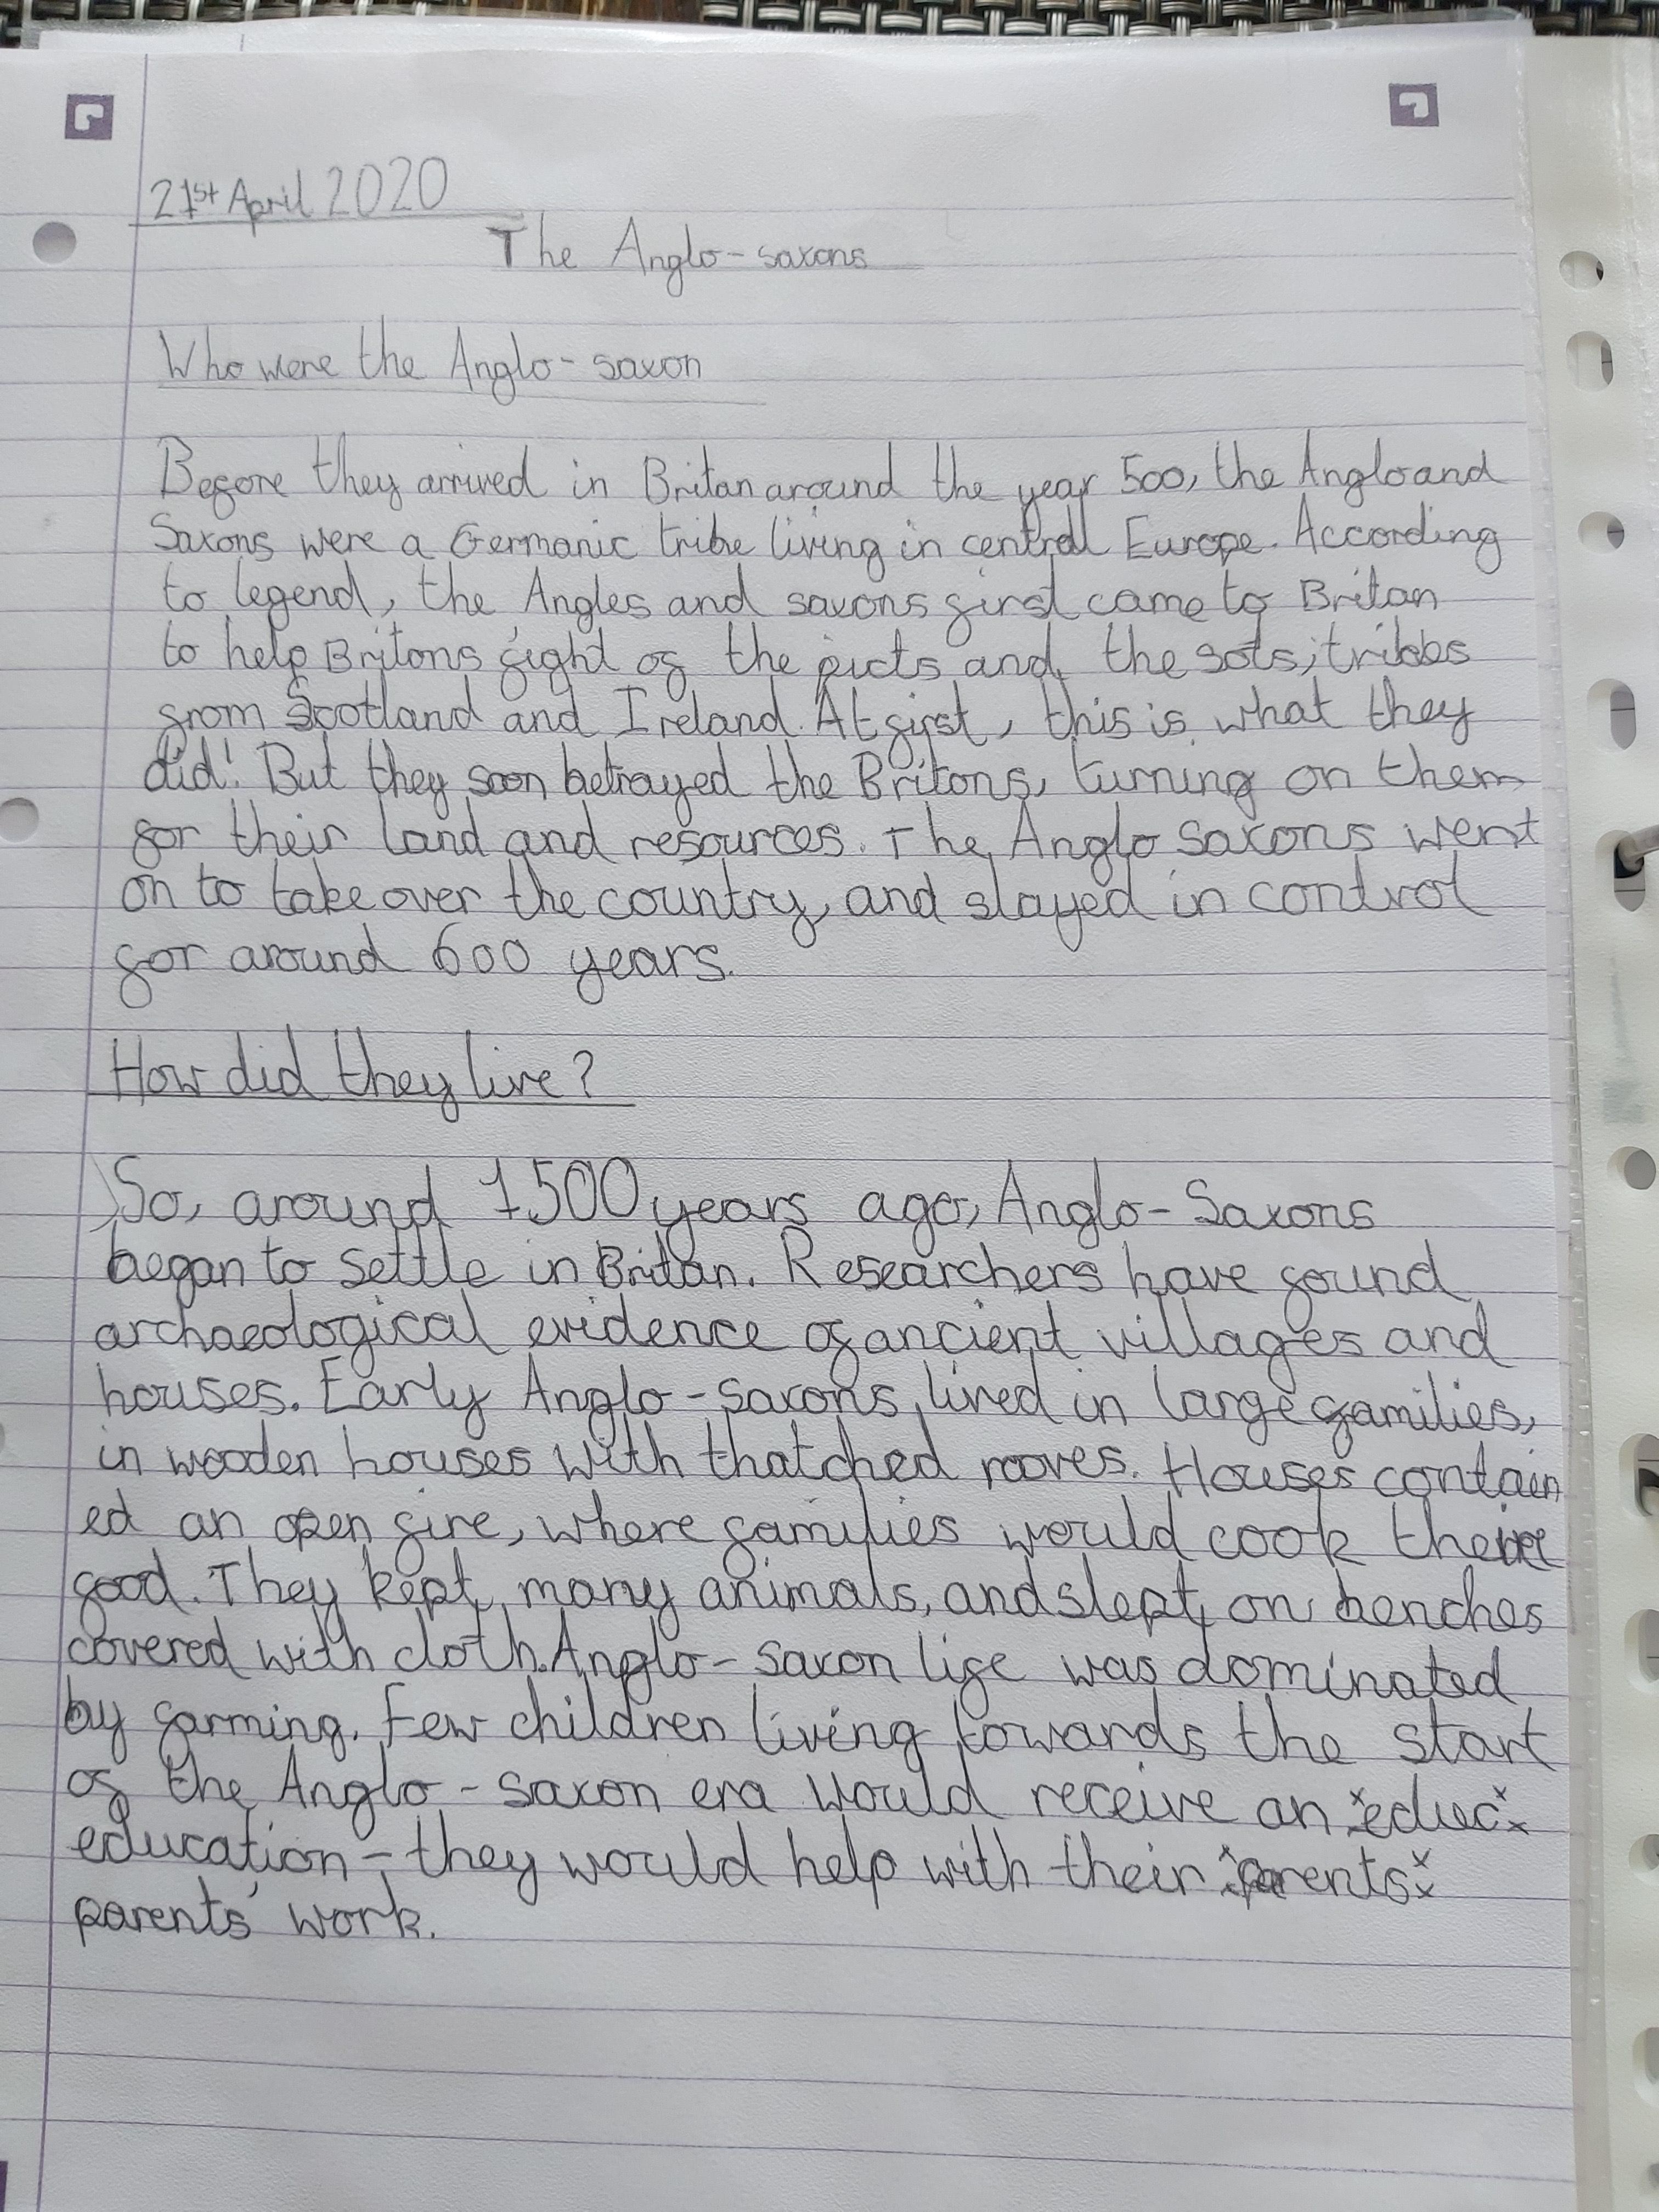 21st April 2020
The Anglo-saxons
Who were the Anglo-saxon
Before they arrived in Britan around the year 500, the Anglo and
Saxons were a Germanic tribe living in central Europe. According
to legend, the Angles and saxons first came to Britan
to help Britons fight of the picts and the sots, tribes
from Scotland and Ireland. At first, this is what they
did! But they soon betrayed the Britons, turning on them
for their land and resources. The Anglo saxons went
on to take over the country, and stayed in control
for around 600 years.
How did they live?
So, around 1500 years ago, Anglo-Saxons
began to settle in Britan. Researchers have found
archaeological evidence of ancient villages and
houses. Early Anglo-saxons, lived in large families,
in wooden houses with thatched rooves. Houses contain
ed an open fire, where families would cook their
food. They kept many animals, and slept on benches
covered with cloth. Anglo-saxon life was dominated
by farming. Few children living towards the start
of the Anglo-saxon era would receive an educ
education - they would help with their parents
parents' work.